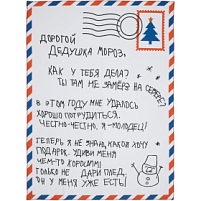 ДОРОГОЙ
ДЕДУШКА МОРОЗ,
КАК У ТЕБЯ ДЕЛА?
ТЫ ТАМ НЕ ЗАМЁРЗ НА СЕВЕРЕ?
В ЭТОМ ГОДУ МНЕ УДАЛОСЬ
ХОРОШО ПОТРУДИТЬСЯ.
ЧЕСТНО-ЧЕСТНО, Я-МОЛОДЕЦ!
ТЕПЕРЬ Я НЕ ЗНАЮ, КАКОЙ ХОЧУ
ПОДАРОК. УДИВИ МЕНЯ
ЧЕМ-ТО ХОРОШИМ!
ТОЛЬКО НЕ ДАРИ ПЛЕД,
ОН У МЕНЯ УЖЕ ЕСТЬ!